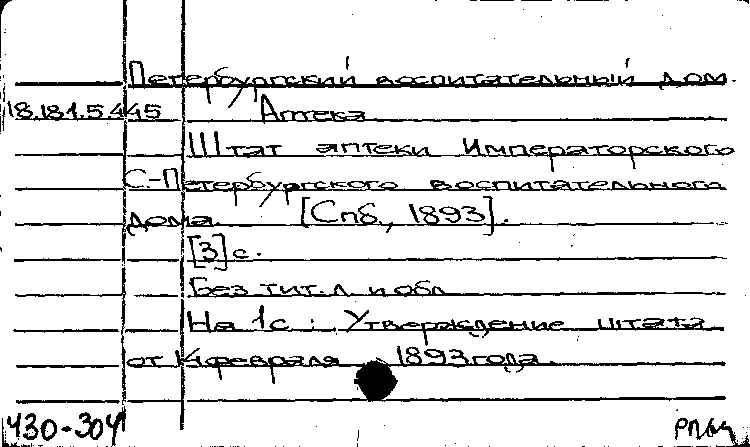 Петербургский воспитательный дом.
18.181.5.445 Аптека
Штат аптеки Императорского
С-Петербургского воспитательного
дома. [Спб, 1893].
[3] с.
Без тит. л и обл
На 1с: Утверждение штата
от 14 февраля 1893 года.
430-304